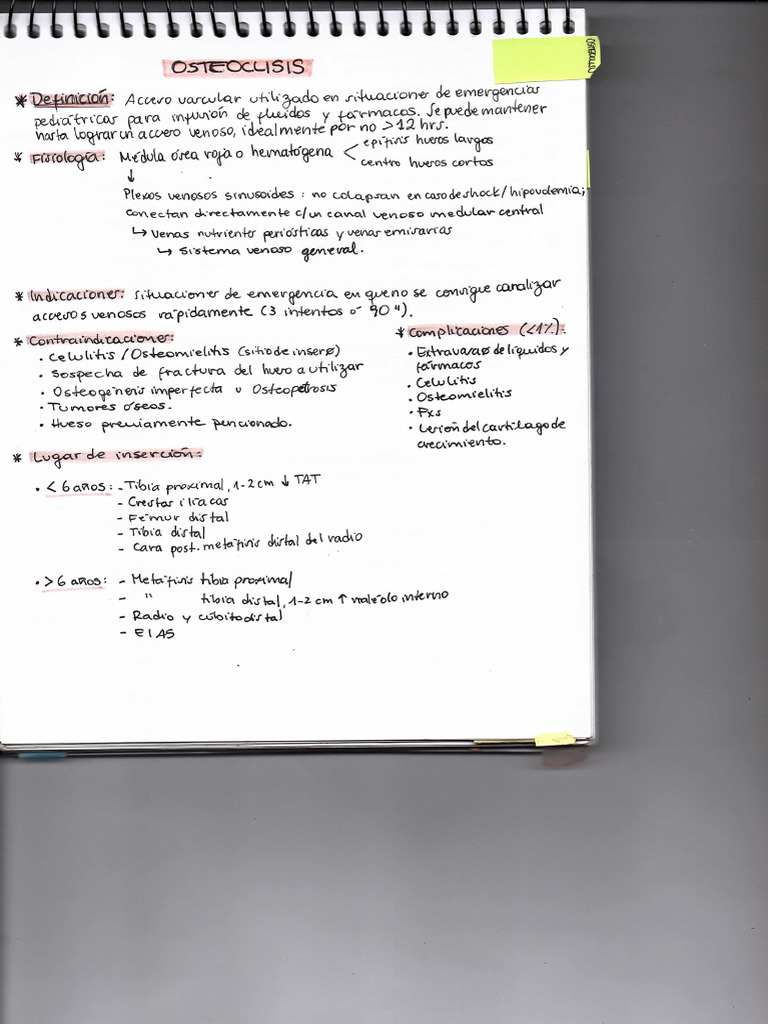 OSTEOCLISIS
OSTEOCLISIS
* Definición: Acceso vascular utilizado en situaciones de emergencias
pediátricas para infusión de fluidos y fármacos. Se puede mantener
hasta lograr un acceso venoso, idealmente por no > 12 hrs.
* Fisiología: Médula ósea roja o hematógena < epífisis huesos largos
centro huesos cortos
↓
Plexos venosos sinusoides: no colapsan en caso de shock/hipovolemia;
conectan directamente c/un canal venoso medular central
↳ Venas nutrientes periósticas y venas emisarias
↳ Sistema venoso general.
* Indicaciones: Situaciones de emergencia en que no se consigue canalizar
accesos venosos rápidamente (3 intentos ó 90").
* Contraindicaciones:
· Celulitis / Osteomielitis (sitio de inserø)
· Sospecha de fractura del hueso a utilizar
· Osteogénesis imperfecta u Osteopetrosis
· Tumores óseos.
· Hueso previamente puncionado.
* Complicaciones (<1%):
· Extravasaø de líquidos y
fármacos
· Celulitis
· Osteomielitis
· Fxs
· Lesión del cartílago de
crecimiento.
* Lugar de inserción:
· < 6 años: - Tibia proximal, 1-2 cm ↓ TAT
- Crestas ilíacas
- Fémur distal
- Tibia distal
- Cara post. metáfisis distal del radio
· > 6 años: - Metáfisis tibia proximal
- " tibia distal, 1-2 cm ↑ maléolo interno
- Radio y cúbito distal
- EIAS